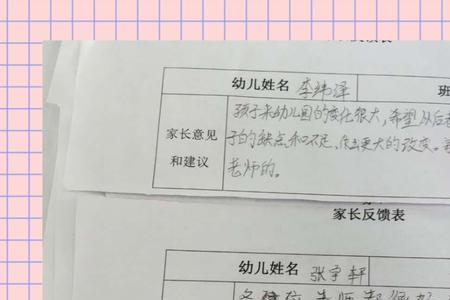 反馈表
幼儿姓名 李纬泽 班
孩子来幼儿园的变化很大,希望从后
家长意见 子的缺点和不足,作出更大的改变。
和建议 老师的。
家长反馈表
幼儿姓名 张宇轩
各位